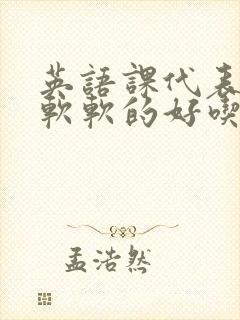 英語課代表
軟軟的好喫
孟浩然